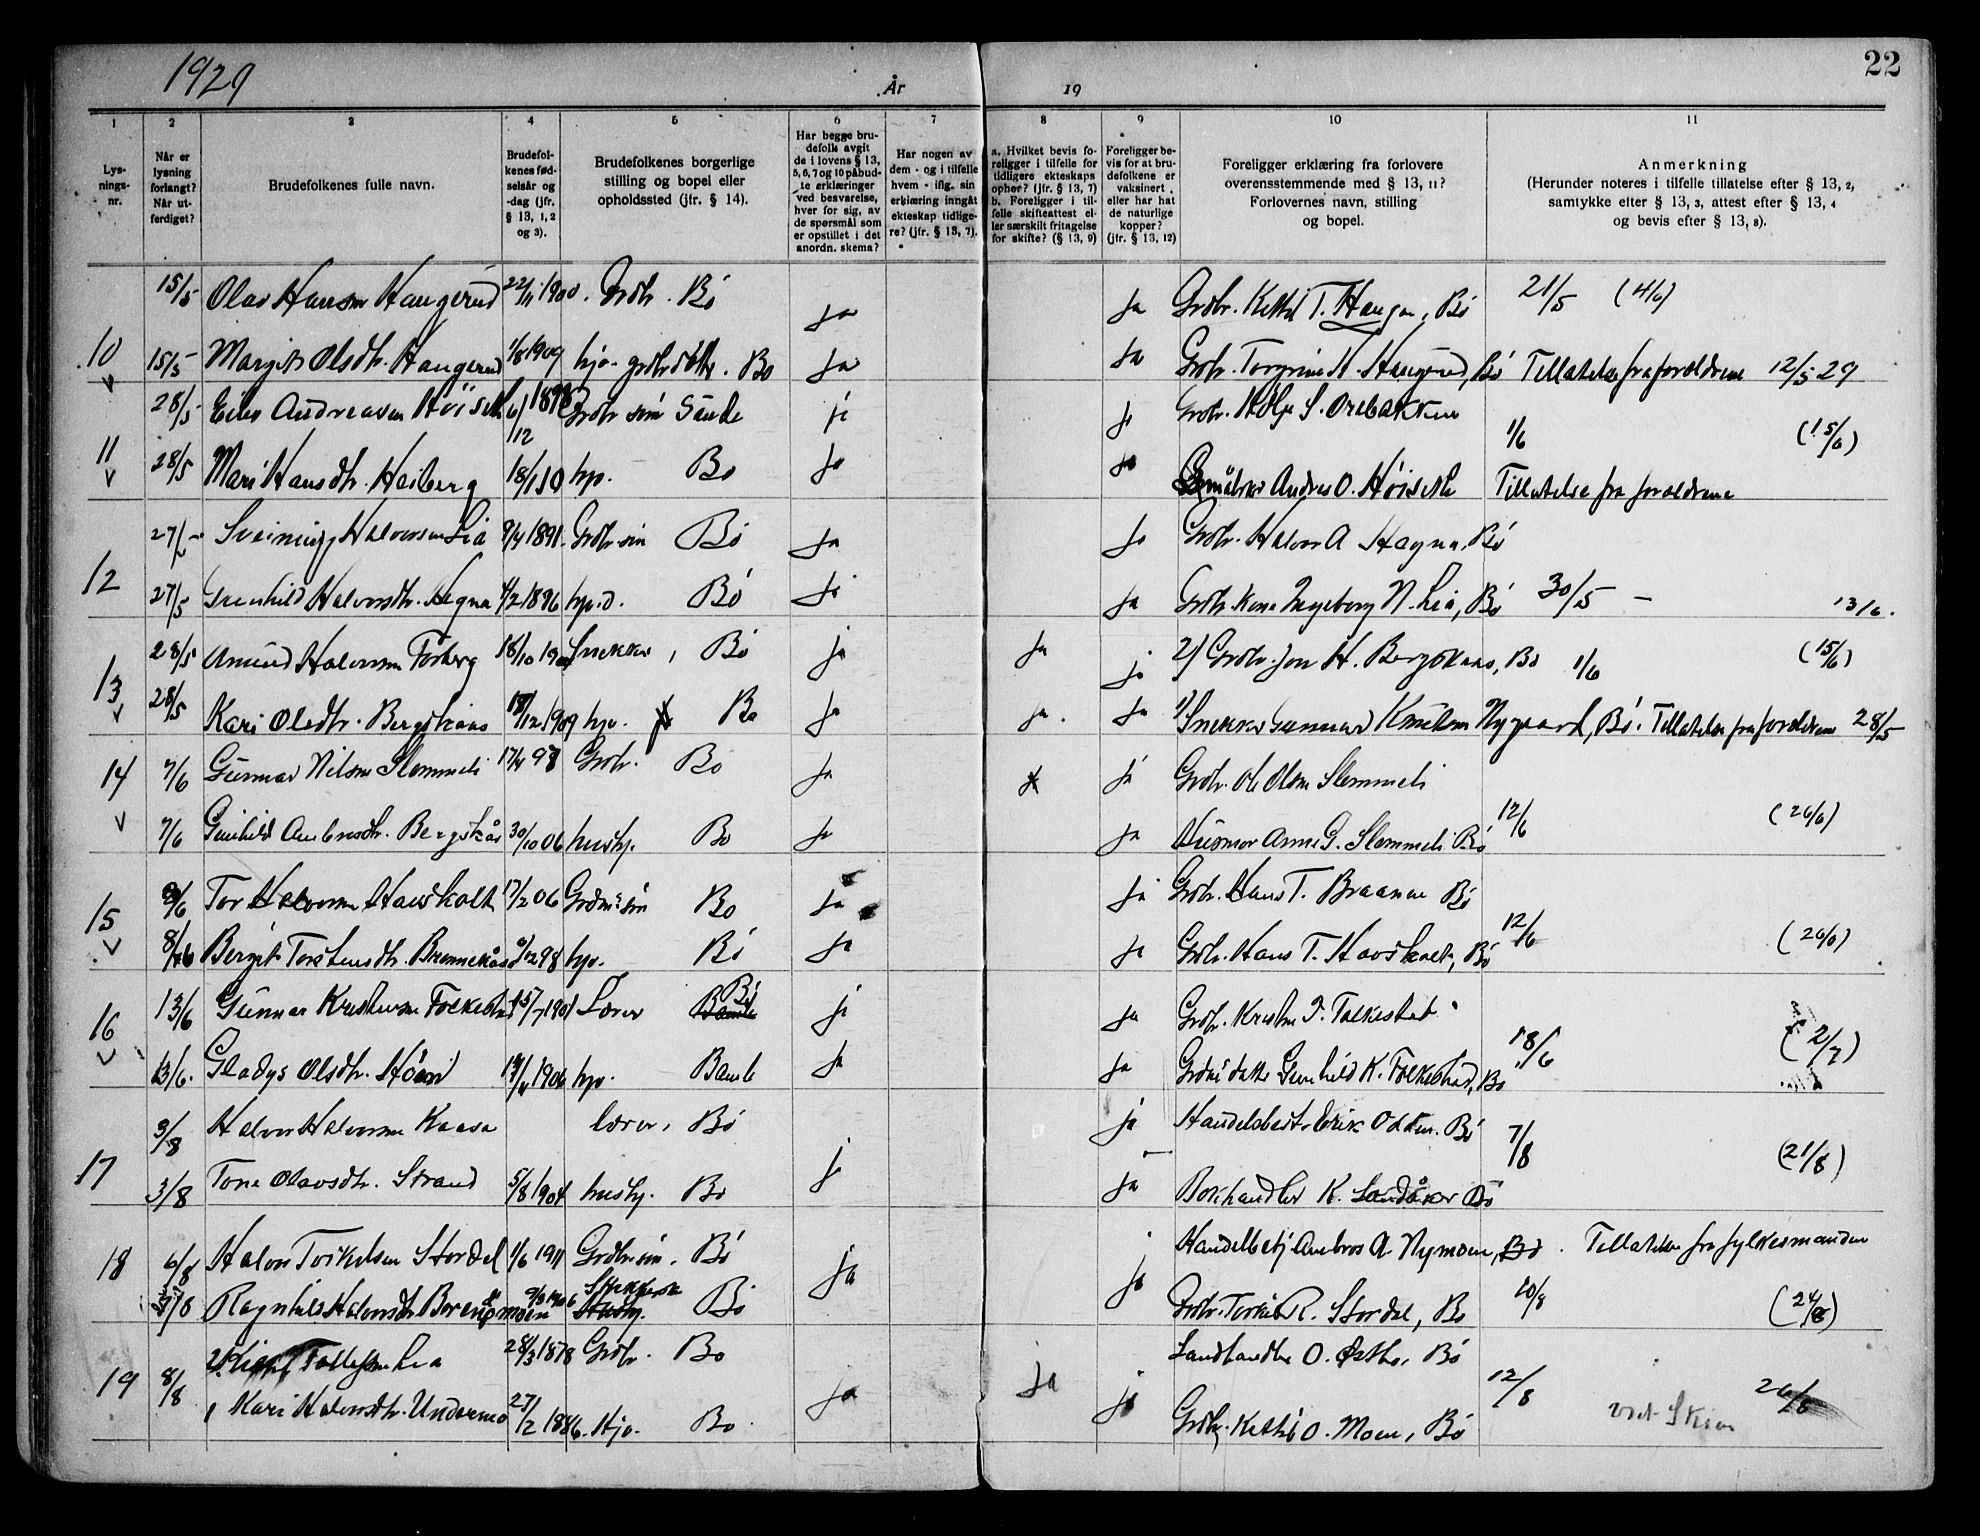 1929
År
19
22
1 2 3 4 5 6 7 8 9 10 11
Lys-
nings-
nr.
Når er
lysning
forlangt?
Når ut-
ferdiget?
Brudefolkenes fulle navn.
Brudefol-
kenes fød-
selsår og
-dag (jfr.
§ 13, 1, 2
og 3).
Brudefolkenes borgerlige
stilling og bopel eller
opholdssted (jfr. § 14).
Har begge bru-
defolk avgit
de i lovens § 13,
5, 6, 7 og 10 påbud-
te erklæringer
ved besvarelse,
hver for sig, av
de spørsmål som
er opstillet i det
anordn. skema?
Har nogen av
dem - og i tilfelle
hvem - iflg. sin
erklæring inngåt
ekteskap tidlige-
re? (jfr. § 13, 7).
a. Hvilket bevis fo-
religger i tilfelle for
tidligere ekteskaps
ophør? (jfr. § 13, 7)
b. Foreligger i til-
felle skifteattest el-
ler særskilt fritagelse
for skifte? (§ 13, 9)
Foreligger be-
vis for at bru-
defolkene er
vaksinert
eller har hat
de naturlige
kopper?
(jfr. § 13, 12)
Foreligger erklæring fra forlovere
overensstemmende med § 13, 11?
Forlovernes navn, stilling
og bopel.
Anmerkning
(Herunder noteres i tilfelle tillatelse efter § 13, 2,
samtykke efter § 13, 3, attest efter § 13, 4
og bevis efter § 13, 8).
15/5 Olav Hansen Haugerud 22/11 1900. Grdbr. Bø ja ja Grdbr. Kettil T. Haugen, Bø 21/5 (4/6)
10 15/5 Margit Olsdtr. Haugerud 1/8 1909 hjv. grdbrdtter. Bø ja ja Grdbr. Torgrim H. Haugerud, Bø Tillatelse fra foreldrene 12/5 29
28/5 Andreasen Høiseth 6/12 Grdbr søn Sande ja ja Grdbr. S. Orebakken 1/6 (15/6)
11 28/5 Mari Hansdtr. Heiberg hjv. Bø ja ja Småbr. Andres O. Høiseth Tillatelse fra foreldrene
27/5 Sveinung Halvorsen Lia 9/4 1891. Grdbr søn Bø ja ja Grdbr. Halvor A Hegna, Bø
12 27/5 Gunhild Halvorsdtr. Hegna 4/2 1896 hjv.d. Bø ja ja Grdbr. kone Ingeborg N. Lia, Bø 30/5 - 13/6.
28/5 Amund Halvorsen Forberg 18/10 Snekker, Bø ja ja ja 2) Grdbr. Jon H. Bergskaas, Bø 1/6 (15/6)
13 28/5 Kari Olsdtr. Bergskaas 18/12 1909 hjv. Bø ja ja. ja 1) Snekker Gunnar Knutsen Nygaard, Bø. Tillatelse fra foreldrene 28/5
14 7/6 Gunnar Nilsen Slemmeli 17/4 98 Grdbr. Bø ja ja Grdbr. Ole Olsen Slemmeli
7/6 Gunhild Ambrosdtr. Bergskås 30/10 06 hushj. Bø ja ja Husmor Anne G. Slemmeli Bø 12/6 (26/6)
15 8/6 Tor Halvorsen Havsholt 17/2 06 Grdm. søn Bø ja ja Grdbr. Hans T. Braanan Bø
8/6 Bergit Torstensdtr. Brennekås 98 hjv. Bø ja ja Grdbr. Hans T. Havsholt, Bø 12/6 (26/6)
16 13/6 Gunnar Kristensen Folkestad 15/7 1901 Lærer Bø ja ja Grdbr. Kristen F. Folkestad
13/6. Gladys Olsdtr. 1906 hjv. Bamle ja ja Grdm. datter Gunhild K. Folkestad, Bø 18/6 (2/7)
3/8 Halvor Halvorsen Kaasa lærer, Bø ja Handelsbest. Erik Odden. Bø 7/8 (21/8)
17 3/8 Tone Olavsdtr. Strand 5/8 1904 hushj. Bø ja ja Bokhandler K. Sandåker Bø
18 6/8 Halvor Torkelsen Stordal 1/6 1911 Grdbr søn. Bø ja ja Handelsbetj Ambros A. Nymoen, Bø. Tillatelse fra fylkesmannen
Ragnhild Halvorsdtr. Bø Grdbr. Torkil R. Stordal, Bø 10/8 (24/8)
19 8/8 Lia 28/3 1878 Grdbr. Bø ja ja ja Landhandler O. Østbø, Bø
Kari Halvorsdtr. 27/2 1886. Hjv. Bø Grdbr. Kettil O. Moen, Bø 12/8 26/8
viet Skien